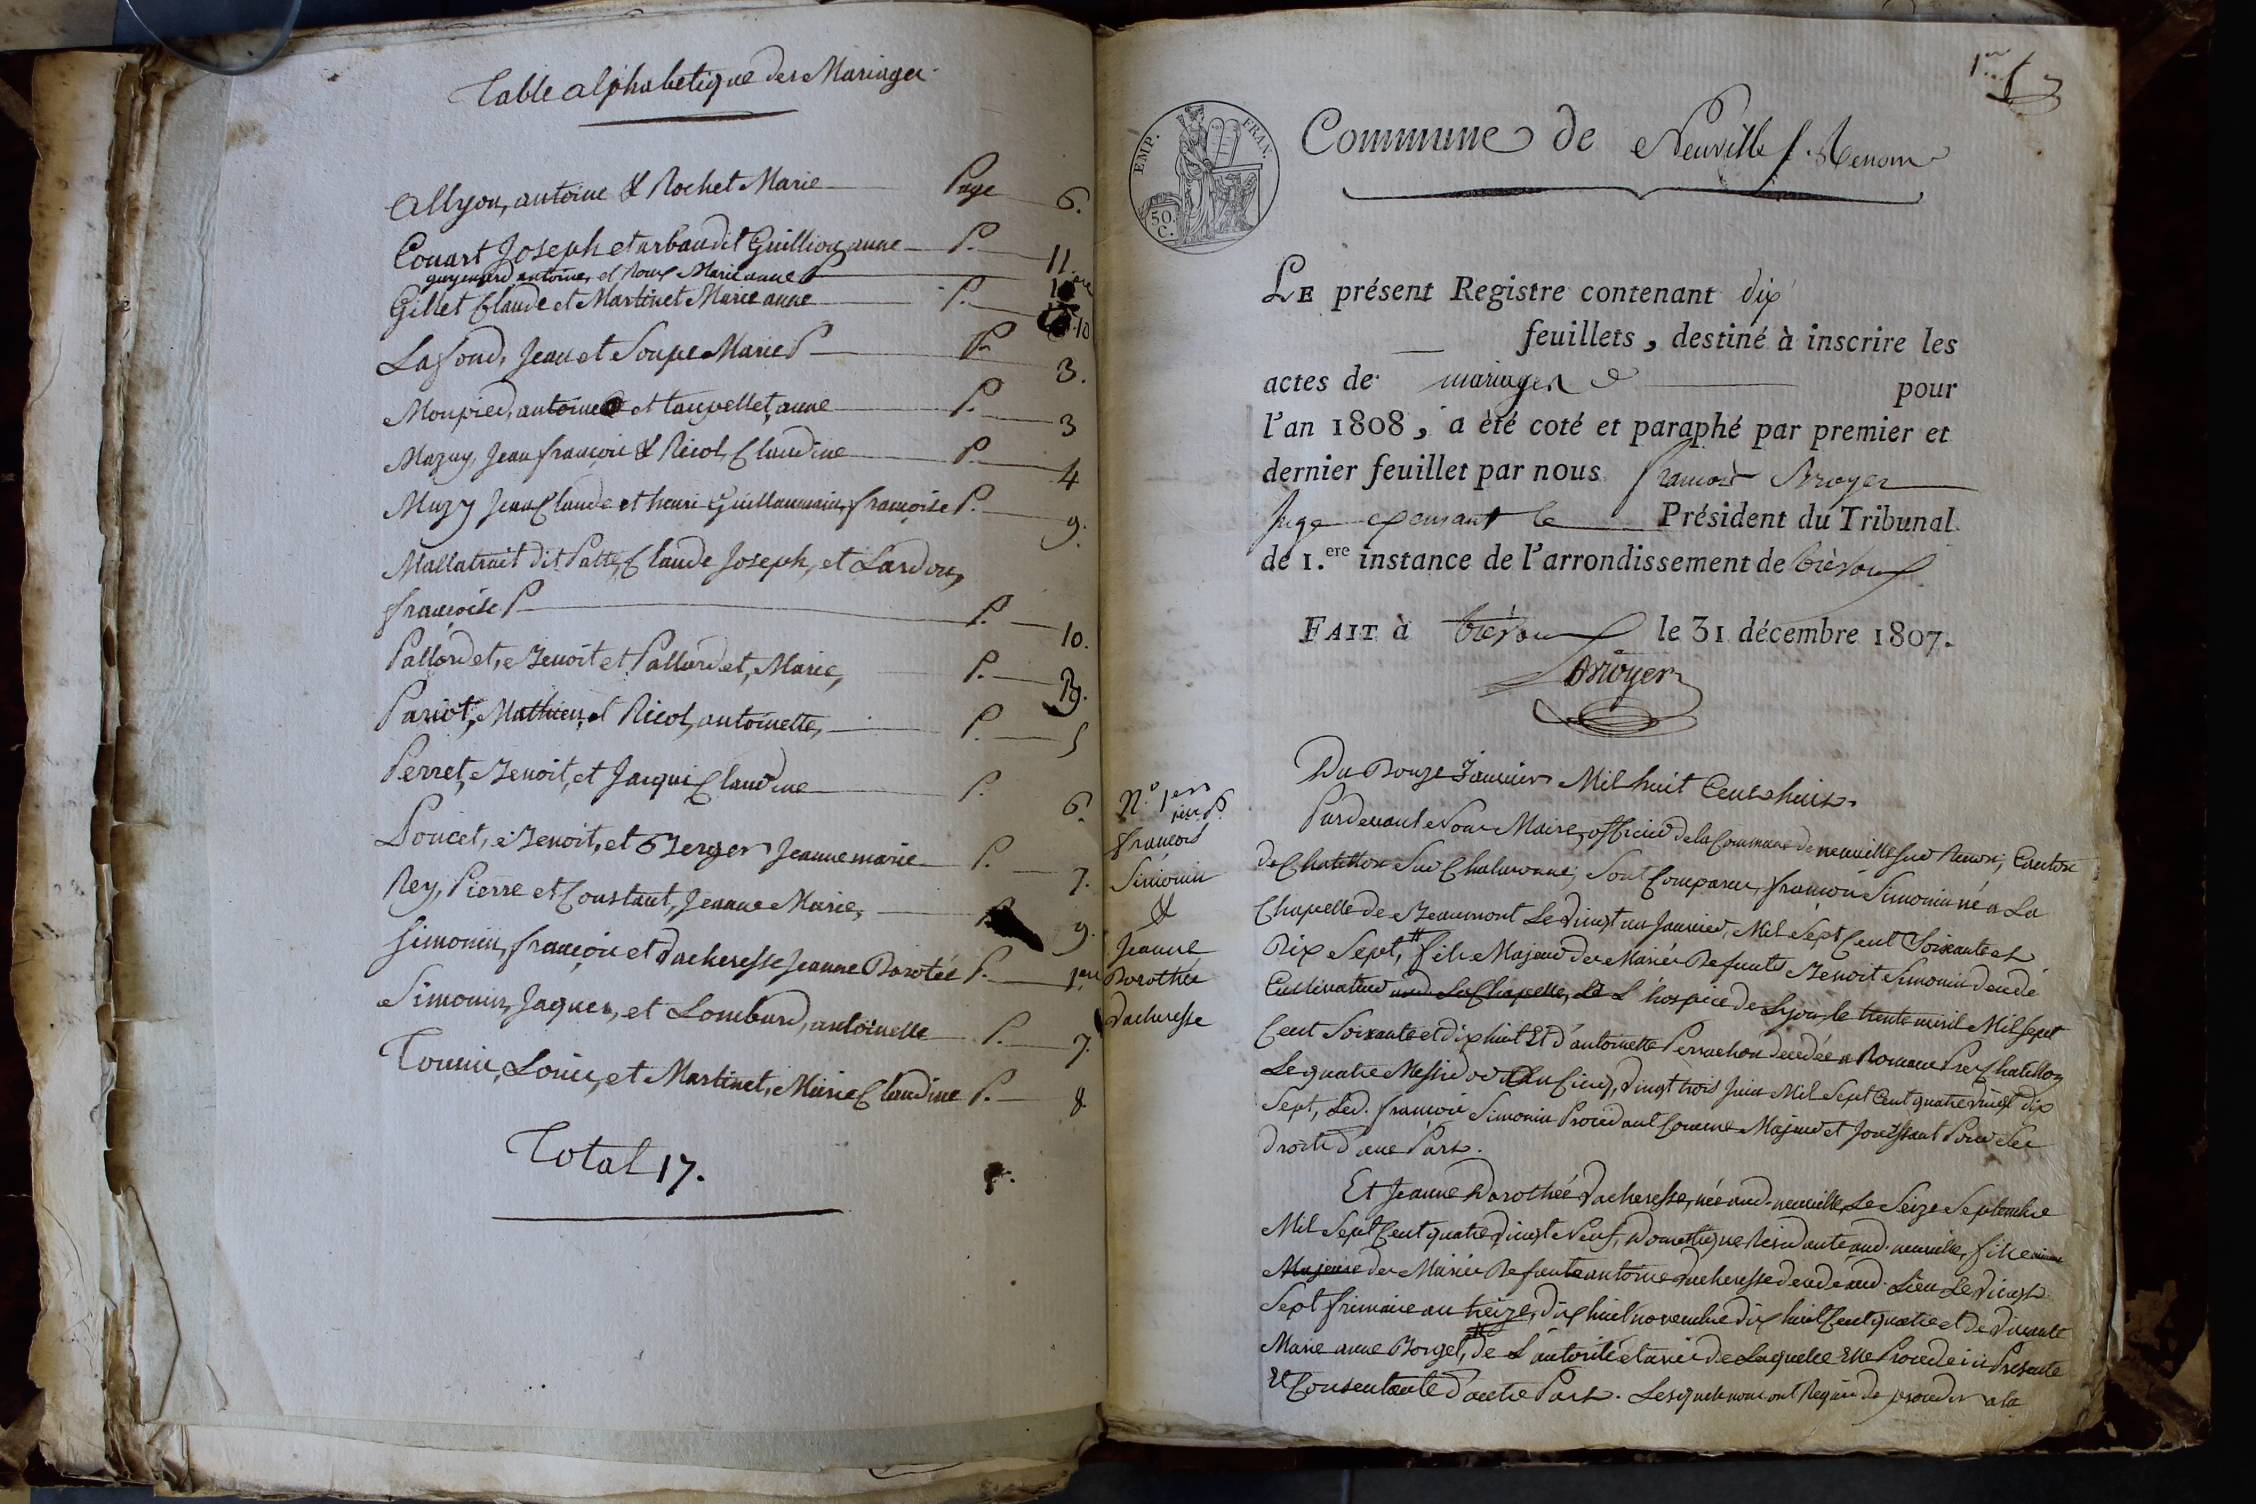 Table alphabetique des Mariages
allyon, antoine & Rochet Marie Page 6.
Couart Joseph et arbandit Guillion, anne P. 11.
guyennard antoine, et Roux Marie anne P 1ere
Gillet Claude et Martinet Marie anne P. 10
Lafond, Jean et Soupe Marie P P. 3.
Monpied, antoine et taupellet, anne P. 3
Mazuy, Jean françois & Ricol, Claudine P. 4
Muzy Jean Claude et henri Guillaumain, françoise P. 9.
Mallatrait dit Patte, Claude Joseph, et Lardon,
françoise P P. 10.
Pallordet, Benoit et Pallordet, Marie, P. 9.
Pariot, Mathieu, et Ricol, antoinette, P. 5
Perret, Benoit, et Jaqui Claudine P. 6.
Poncet, Benoit, et Berger Jeanne marie P. 7.
Rey, Pierre et Constant, Jeanne Marie, 9.
Simonin, françois et Vacheresse Jeanne Dorotée P. 1ere
Simonin, Jaques, et Lombard, antoinette P. 7.
Tonin, Louis, et Martinet, Marie Claudine P. 8
Total 17.
1er
EMP. FRAN.
50. C.
Commune de Neuville s. Renom
LE présent Registre contenant dix
feuillets, destiné à inscrire les
actes de mariages pour
l'an 1808, a été coté et paraphé par premier et
dernier feuillet par nous françois Broyer
Juge Président du Tribunal
de 1.ere instance de l'arrondissement de trévoux
FAIT à trévoux le 31 décembre 1807.
Broyer
N.o 1er
françois
Simonin
&
Jeanne
Dorothée
Vacheresse
Du Douze Janvier Mil huit Cent huit.
Pardevant Nous Maire, officier de la Commune de neuville sur Renon, Canton
de Chatillon Sur Chalaronne, Sont Comparus, françois Simonin né a La
Chapelle de Beaumont Le vingt un Janvier, Mil Sept Cent Soixante et
Dix Sept, fils Majeur des Mariés Defunts Benoit Simonin décédé
Cultivateur L'hospice de Lyon, le trente avril Mil Sept
Cent Soixante et dix huit Et d'antoinette Perrachon decedée a Romans Pres Chatillon
Le quatre Messidor an Cinq, vingt trois Juin Mil Sept Cent quatre vingt dix
Sept, Led. françois Simonin Procédant Comme Majeur et Jouissant de Ses
droits d'une Part.
Et Jeanne Dorothée Vacheresse, née aud. neuville, Le Seize Septembre
Mil Sept Cent quatre vingt Neuf, Domestique Residante aud. neuville, fille mineure
Majeure des Mariés Defunt antoine Vacheresse décédé aud. Lieu Le vingt
Sept frimaire an treize, dix huit novembre dix huit Cent quatre et de vivante
Marie anne Borget, de L'autorité et avis de Laquelle Elle Procede ici Presente
et Consentante d'autre Part. Lesquels nous ont Requis de proceder a la